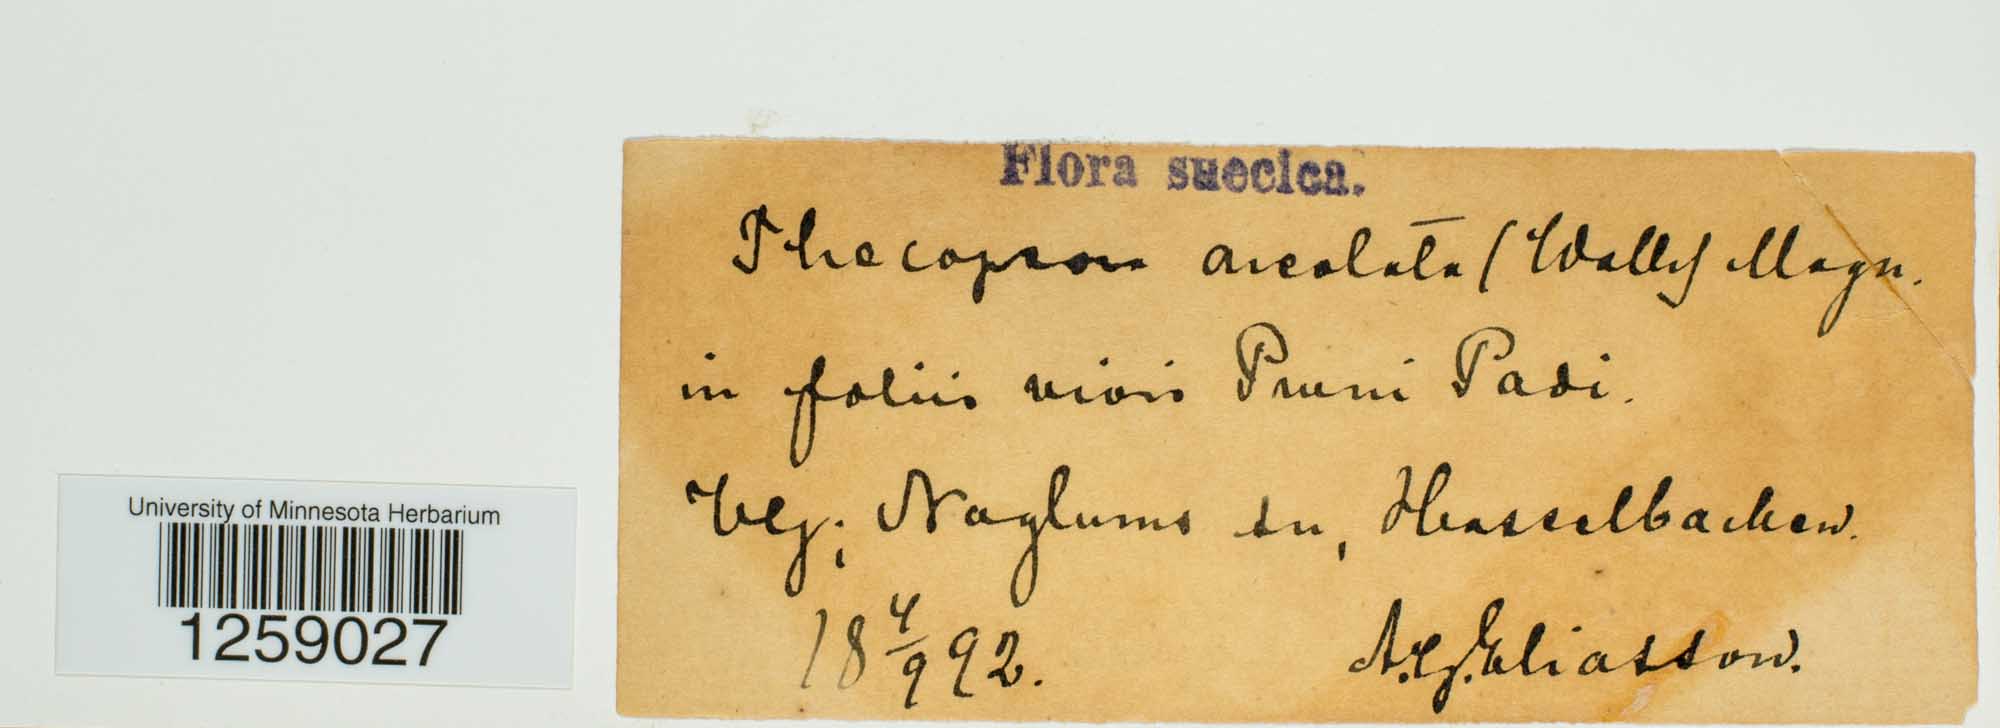 Flora suecica.
Thecopsora areolata (Wallr) Magn.
in foliis vivis Pruni Padi.
Vg; Naglums sn, Hasselbacken.
18 4/9 92.
A.G. Eliasson.
University of Minnesota Herbarium
1259027